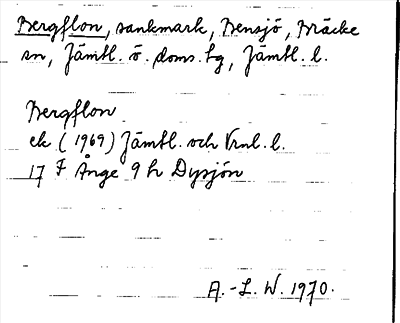 Bergflon, sankmark, Bensjö, Bräcke
sn, Jämtl. ö. doms. tg, Jämtl. l.
Bergflon
ek (1969) Jämtl. och Vrnl. l.
17 F Ånge 9 h Dysjön
A.-L. W. 1970.